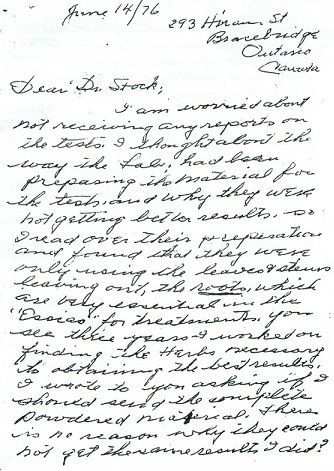 June 14/76
293 Hiram St
Bracebridge
Ontario
Canada
Dear Dr. Stock;
I am worried about
not receiving any reports on
the tests. I thought about the
way the Lab. had been
preparing the material for
the test, and why they were
not getting better results, so
I read over their preperation
and found that they were
only using the leaves & stems
leaving out, the roots, which
are very essential in the
"Essiac" for treatments, you
see three years I worked on
finding the Herbs necessary
to obtaining the best results.
I wrote to you asking if I
should send the complete
powdered material. There
is no reason why they could
not get the same results I did?